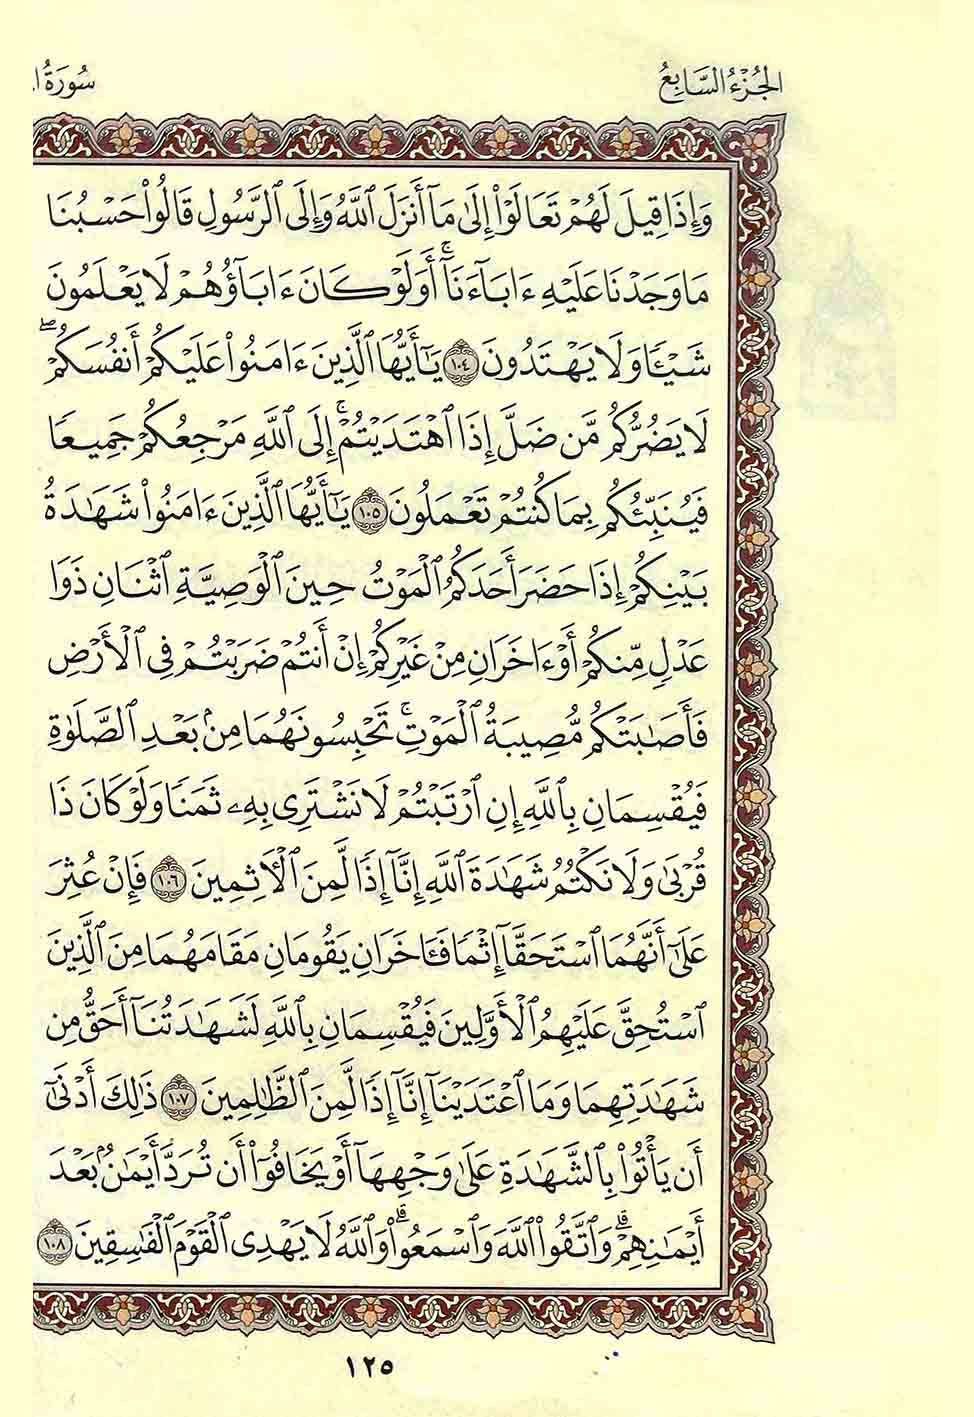 الجُزْءُ السَّابِعُ
سُورَةُ
وَإِذَا قِيلَ لَهُمْ تَعَالَوْا۟ إِلَىٰ مَآ أَنزَلَ ٱللَّهُ وَإِلَى ٱلرَّسُولِ قَالُوا۟ حَسْبُنَا
مَا وَجَدْنَا عَلَيْهِ ءَابَآءَنَآ ۚ أَوَلَوْ كَانَ ءَابَآؤُهُمْ لَا يَعْلَمُونَ
شَيْـًٔا وَلَا يَهْتَدُونَ ١٠٤ يَـٰٓأَيُّهَا ٱلَّذِينَ ءَامَنُوا۟ عَلَيْكُمْ أَنفُسَكُمْ ۖ
لَا يَضُرُّكُم مَّن ضَلَّ إِذَا ٱهْتَدَيْتُمْ ۚ إِلَى ٱللَّهِ مَرْجِعُكُمْ جَمِيعًا
فَيُنَبِّئُكُم بِمَا كُنتُمْ تَعْمَلُونَ ١٠٥ يَـٰٓأَيُّهَا ٱلَّذِينَ ءَامَنُوا۟ شَهَـٰدَةُ
بَيْنِكُمْ إِذَا حَضَرَ أَحَدَكُمُ ٱلْمَوْتُ حِينَ ٱلْوَصِيَّةِ ٱثْنَانِ ذَوَا
عَدْلٍ مِّنكُمْ أَوْ ءَاخَرَانِ مِنْ غَيْرِكُمْ إِنْ أَنتُمْ ضَرَبْتُمْ فِى ٱلْأَرْضِ
فَأَصَـٰبَتْكُم مُّصِيبَةُ ٱلْمَوْتِ ۚ تَحْبِسُونَهُمَا مِنۢ بَعْدِ ٱلصَّلَوٰةِ
فَيُقْسِمَانِ بِٱللَّهِ إِنِ ٱرْتَبْتُمْ لَا نَشْتَرِى بِهِۦ ثَمَنًا وَلَوْ كَانَ ذَا
قُرْبَىٰ وَلَا نَكْتُمُ شَهَـٰدَةَ ٱللَّهِ إِنَّآ إِذًا لَّمِنَ ٱلْـَٔاثِمِينَ ١٠٦ فَإِنْ عُثِرَ
عَلَىٰٓ أَنَّهُمَا ٱسْتَحَقَّآ إِثْمًا فَـَٔاخَرَانِ يَقُومَانِ مَقَامَهُمَا مِنَ ٱلَّذِينَ
ٱسْتُحِقَّ عَلَيْهِمُ ٱلْأَوَّلِينَ فَيُقْسِمَانِ بِٱللَّهِ لَشَهَـٰدَتُنَآ أَحَقُّ مِن
شَهَـٰدَتِهِمَا وَمَا ٱعْتَدَيْنَآ إِنَّآ إِذًا لَّمِنَ ٱلظَّـٰلِمِينَ ١٠٧ ذَٰلِكَ أَدْنَىٰٓ
أَن يَأْتُوا۟ بِٱلشَّهَـٰدَةِ عَلَىٰ وَجْهِهَآ أَوْ يَخَافُوٓا۟ أَن تُرَدَّ أَيْمَـٰنٌۢ بَعْدَ
أَيْمَـٰنِهِمْ ۗ وَٱتَّقُوا۟ ٱللَّهَ وَٱسْمَعُوا۟ ۗ وَٱللَّهُ لَا يَهْدِى ٱلْقَوْمَ ٱلْفَـٰسِقِينَ ١٠٨
١٢٥